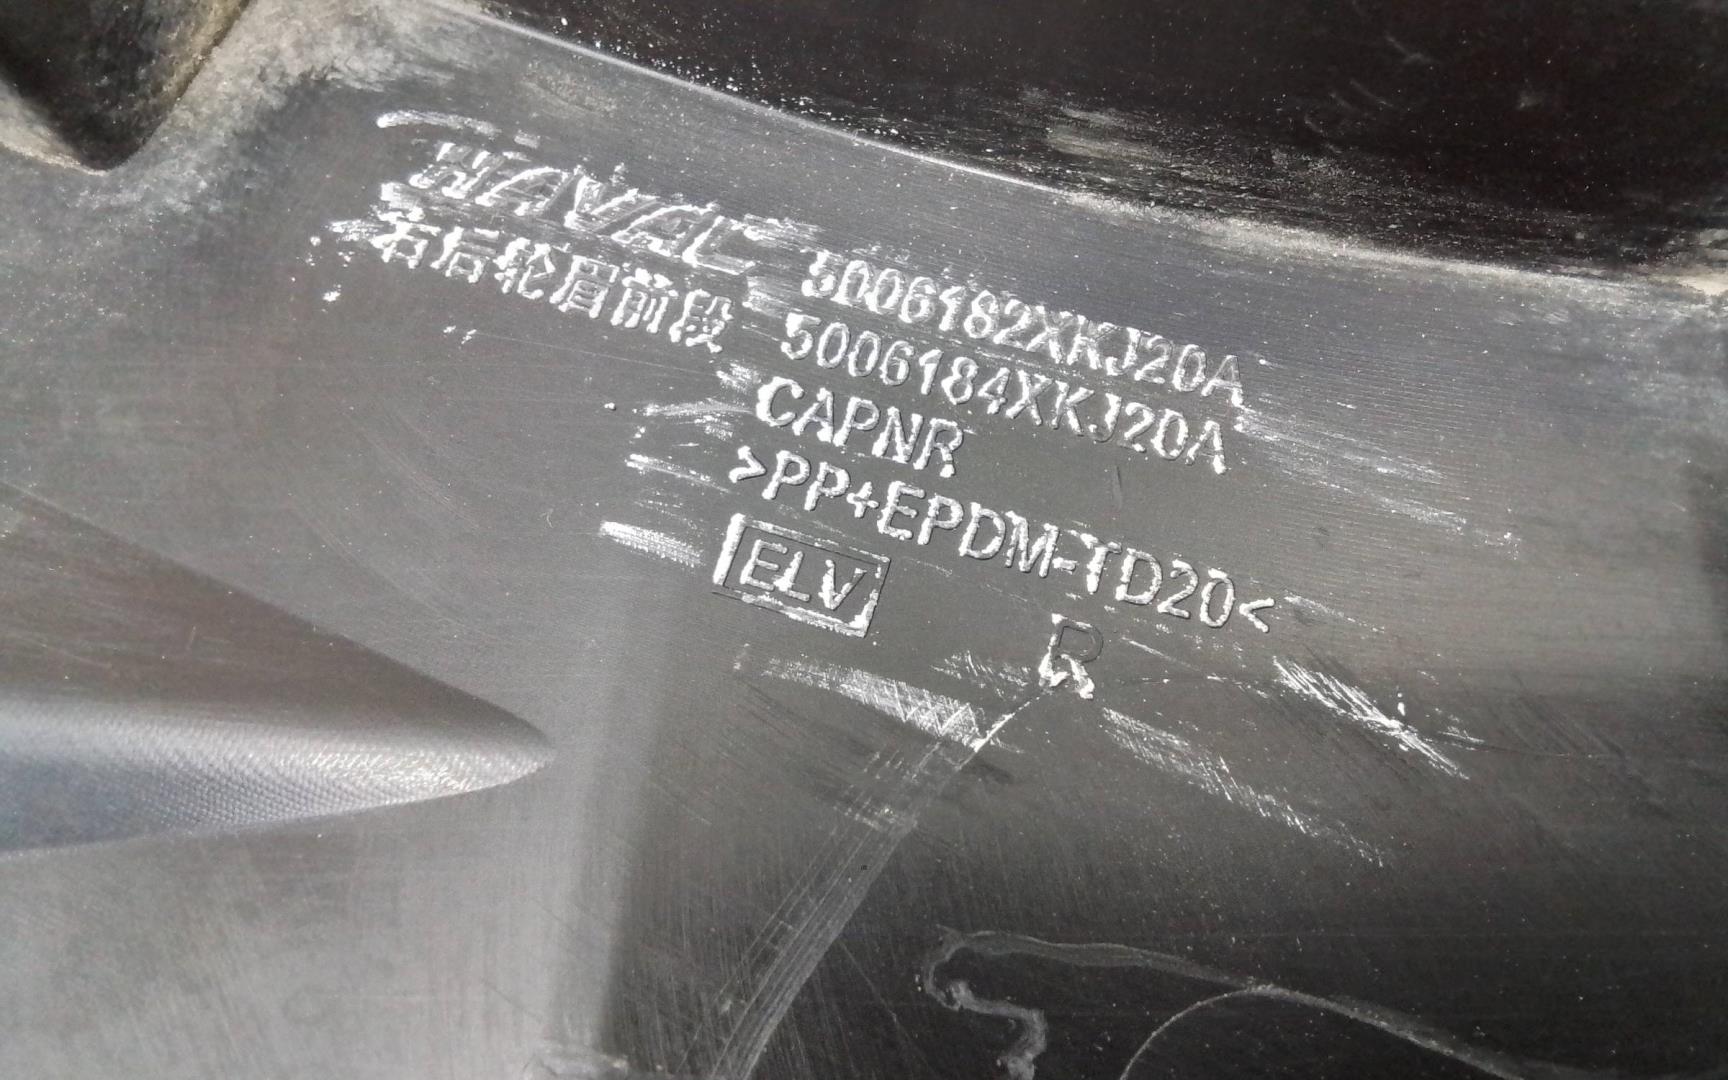 HAVAL 5006182XKJ20A
右后轮眉前段 5006184XKJ20A
CAPNR
>PP+EPDM-TD20<
ELV
R